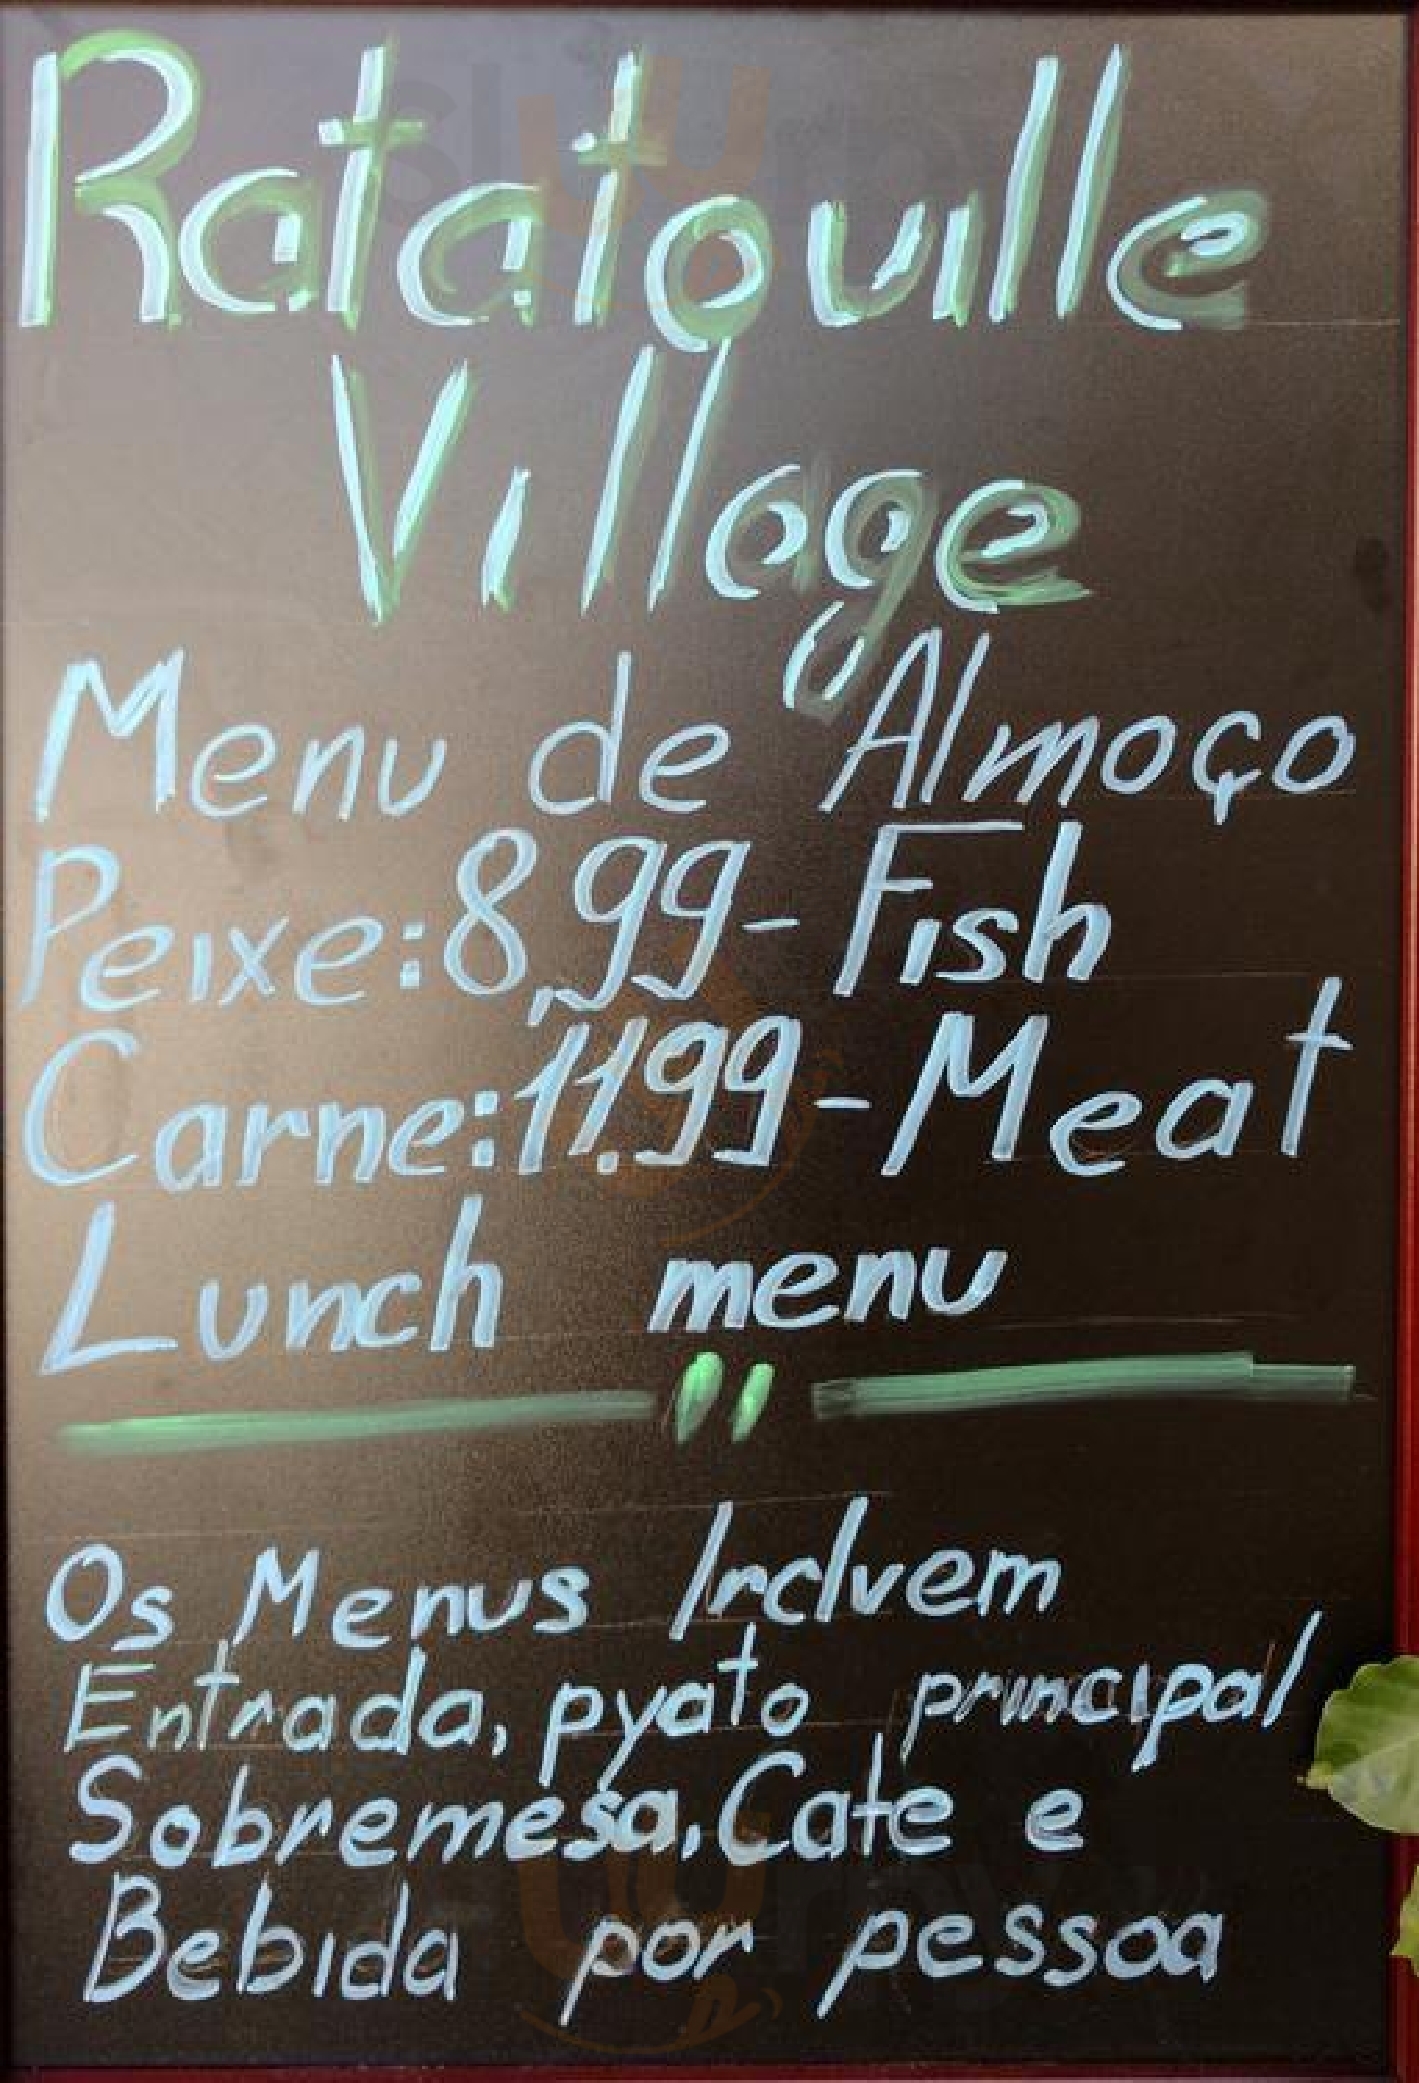 Ratatouille
Village
Menu de Almoço
Peixe: 8,99 - Fish
Carne: 11.99 - Meat
Lunch menu
Os Menus Inclvem
Entrada, pyato principal
Sobremesa, Cafe e
Bebida por pessoa